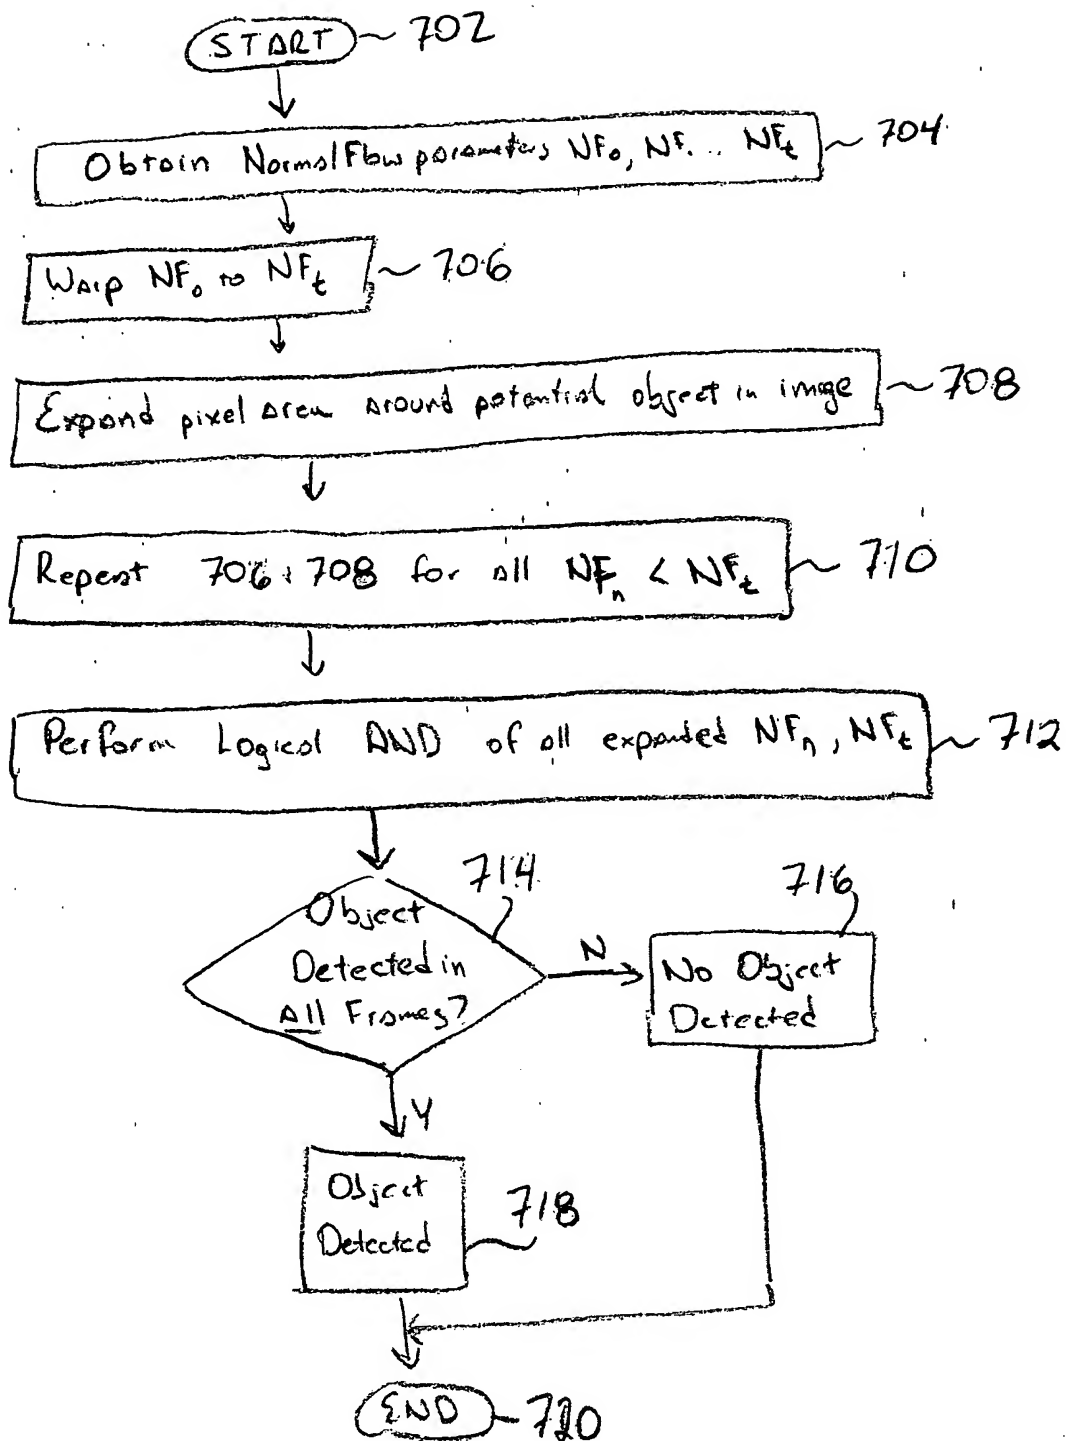 START 702
Obtain Normal Flow parameters NF₀, NF. .. NFₜ 704
Warp NF₀ to NFₜ 706
Expand pixel area around potential object in image 708
Repeat 706 : 708 for all NFₙ < NFₜ 710
Perform Logical AND of all expanded NFₙ, NFₜ 712
714
716
Object
Detected in
All Frames?
N
No Object
Detected
Y
Object
Detected
718
END 720